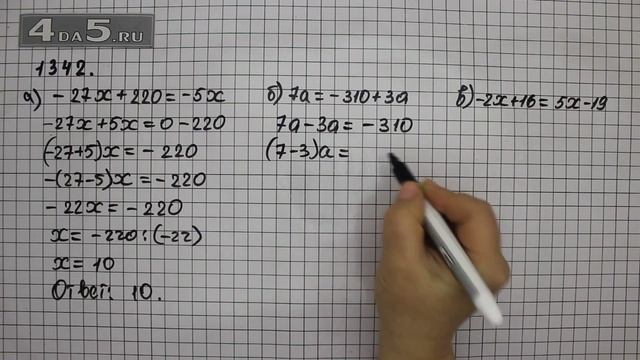 4DA5.RU
1342.
а) -27x+220=-5x
-27x+5x=0-220
(-27+5)x=-220
-(27-5)x=-220
-22x=-220
x=-220:(-22)
x=10
Ответ: 10.
б) 7a=-310+3a
7a-3a=-310
(7-3)a=
в) -2x+16=5x-19